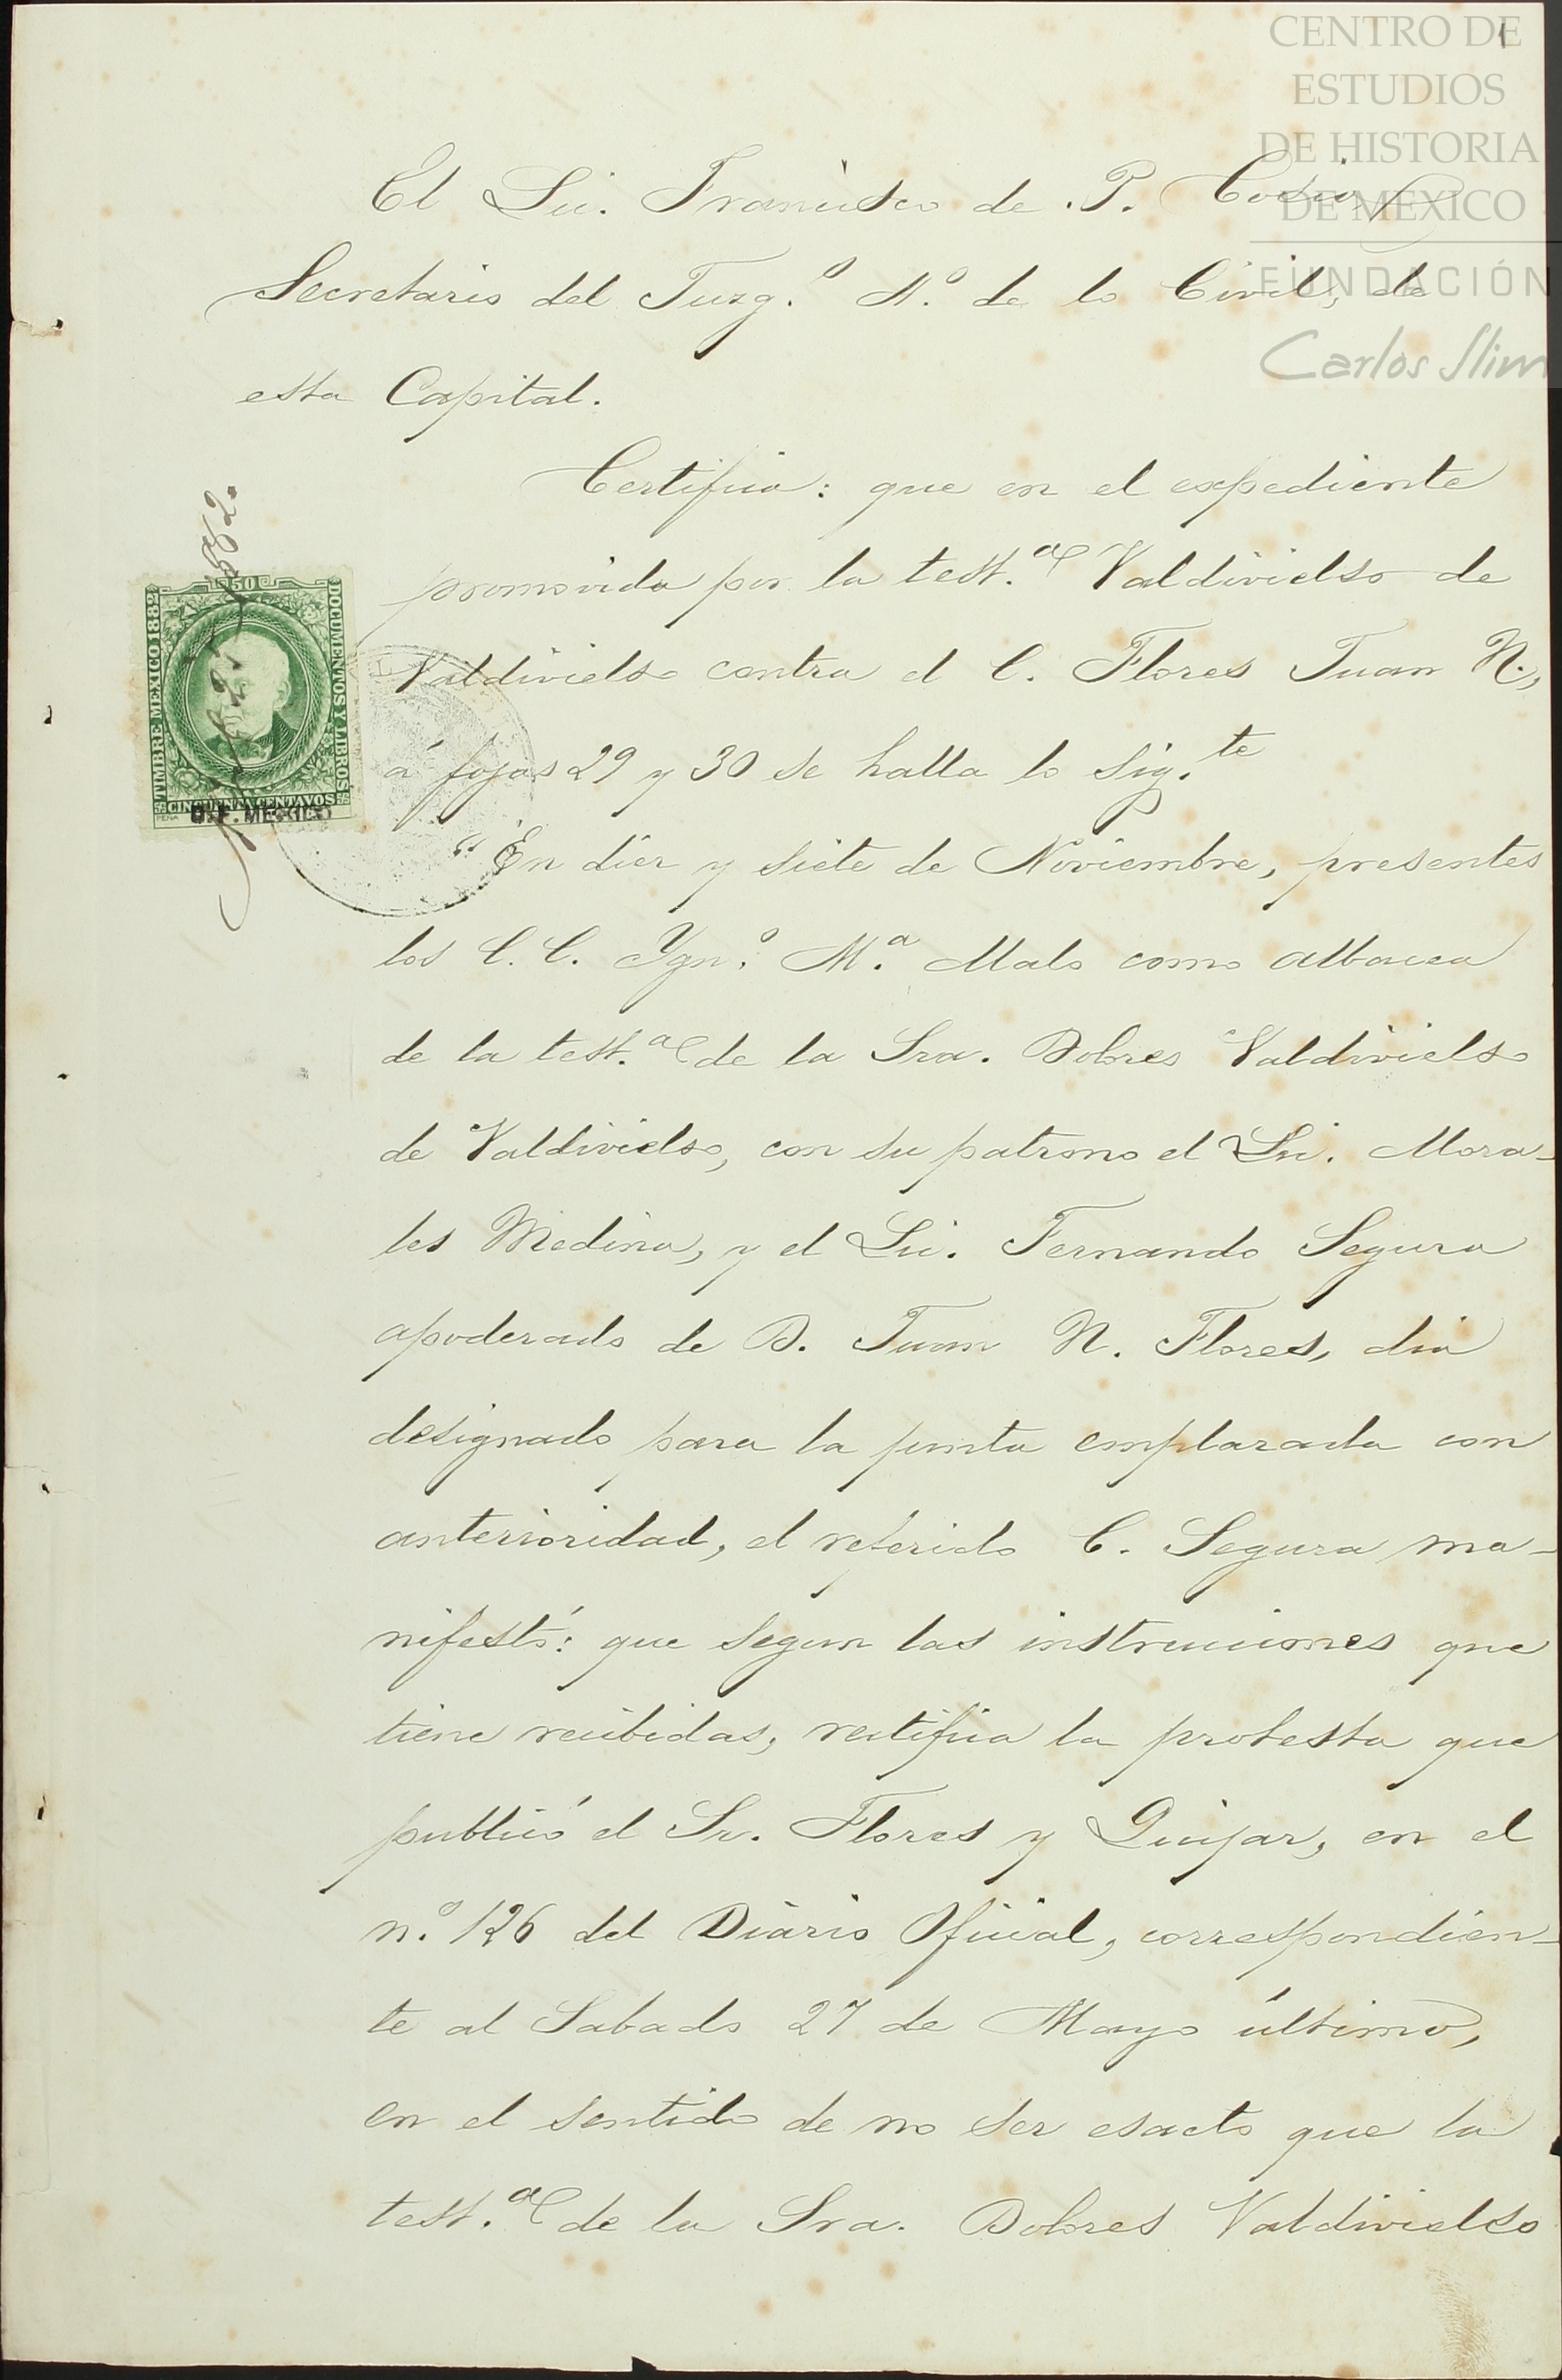 1
CENTRO DE
ESTUDIOS
DE HISTORIA
DE MEXICO
FUNDACIÓN
Carlos Slim
El Lic. Francisco de P. Cosio,
Secretario del Juzg.º 1.º de lo Civil, de
esta Capital.
Certifico: que en el expediente
promovido por la test.ª Valdivielso de
Valdivielso contra el C. Flores Juan N.,
á fojas 29 y 30 se halla lo sig.te
"En diez y siete de Noviembre, presentes
los C. C. Ygn.º M.ª Malo como albacea
de la test.ª de la Sra. Dolores Valdivielso
de Valdivielso, con su patrono el Lic. Mora-
les Medina, y el Lic. Fernando Segura
apoderado de D. Juan N. Flores, dia
designado para la junta emplazada con
anterioridad, el referido C. Segura ma-
nifestó: que segun las instrucciones que
tiene recibidas, rectifica la protesta que
publicó el Sr. Flores y Quijar, en el
n.º 126 del Diario Oficial, correspondien-
te al Sabado 27 de Mayo último,
en el sentido de no ser esacto que la
test.ª de la Sra. Dolores Valdivielso
50
TIMBRE MEXICO 1882
DOCUMENTOS Y LIBROS
CINCUENTA CENTAVOS
PEÑA
D. F. MEXICO
1882.